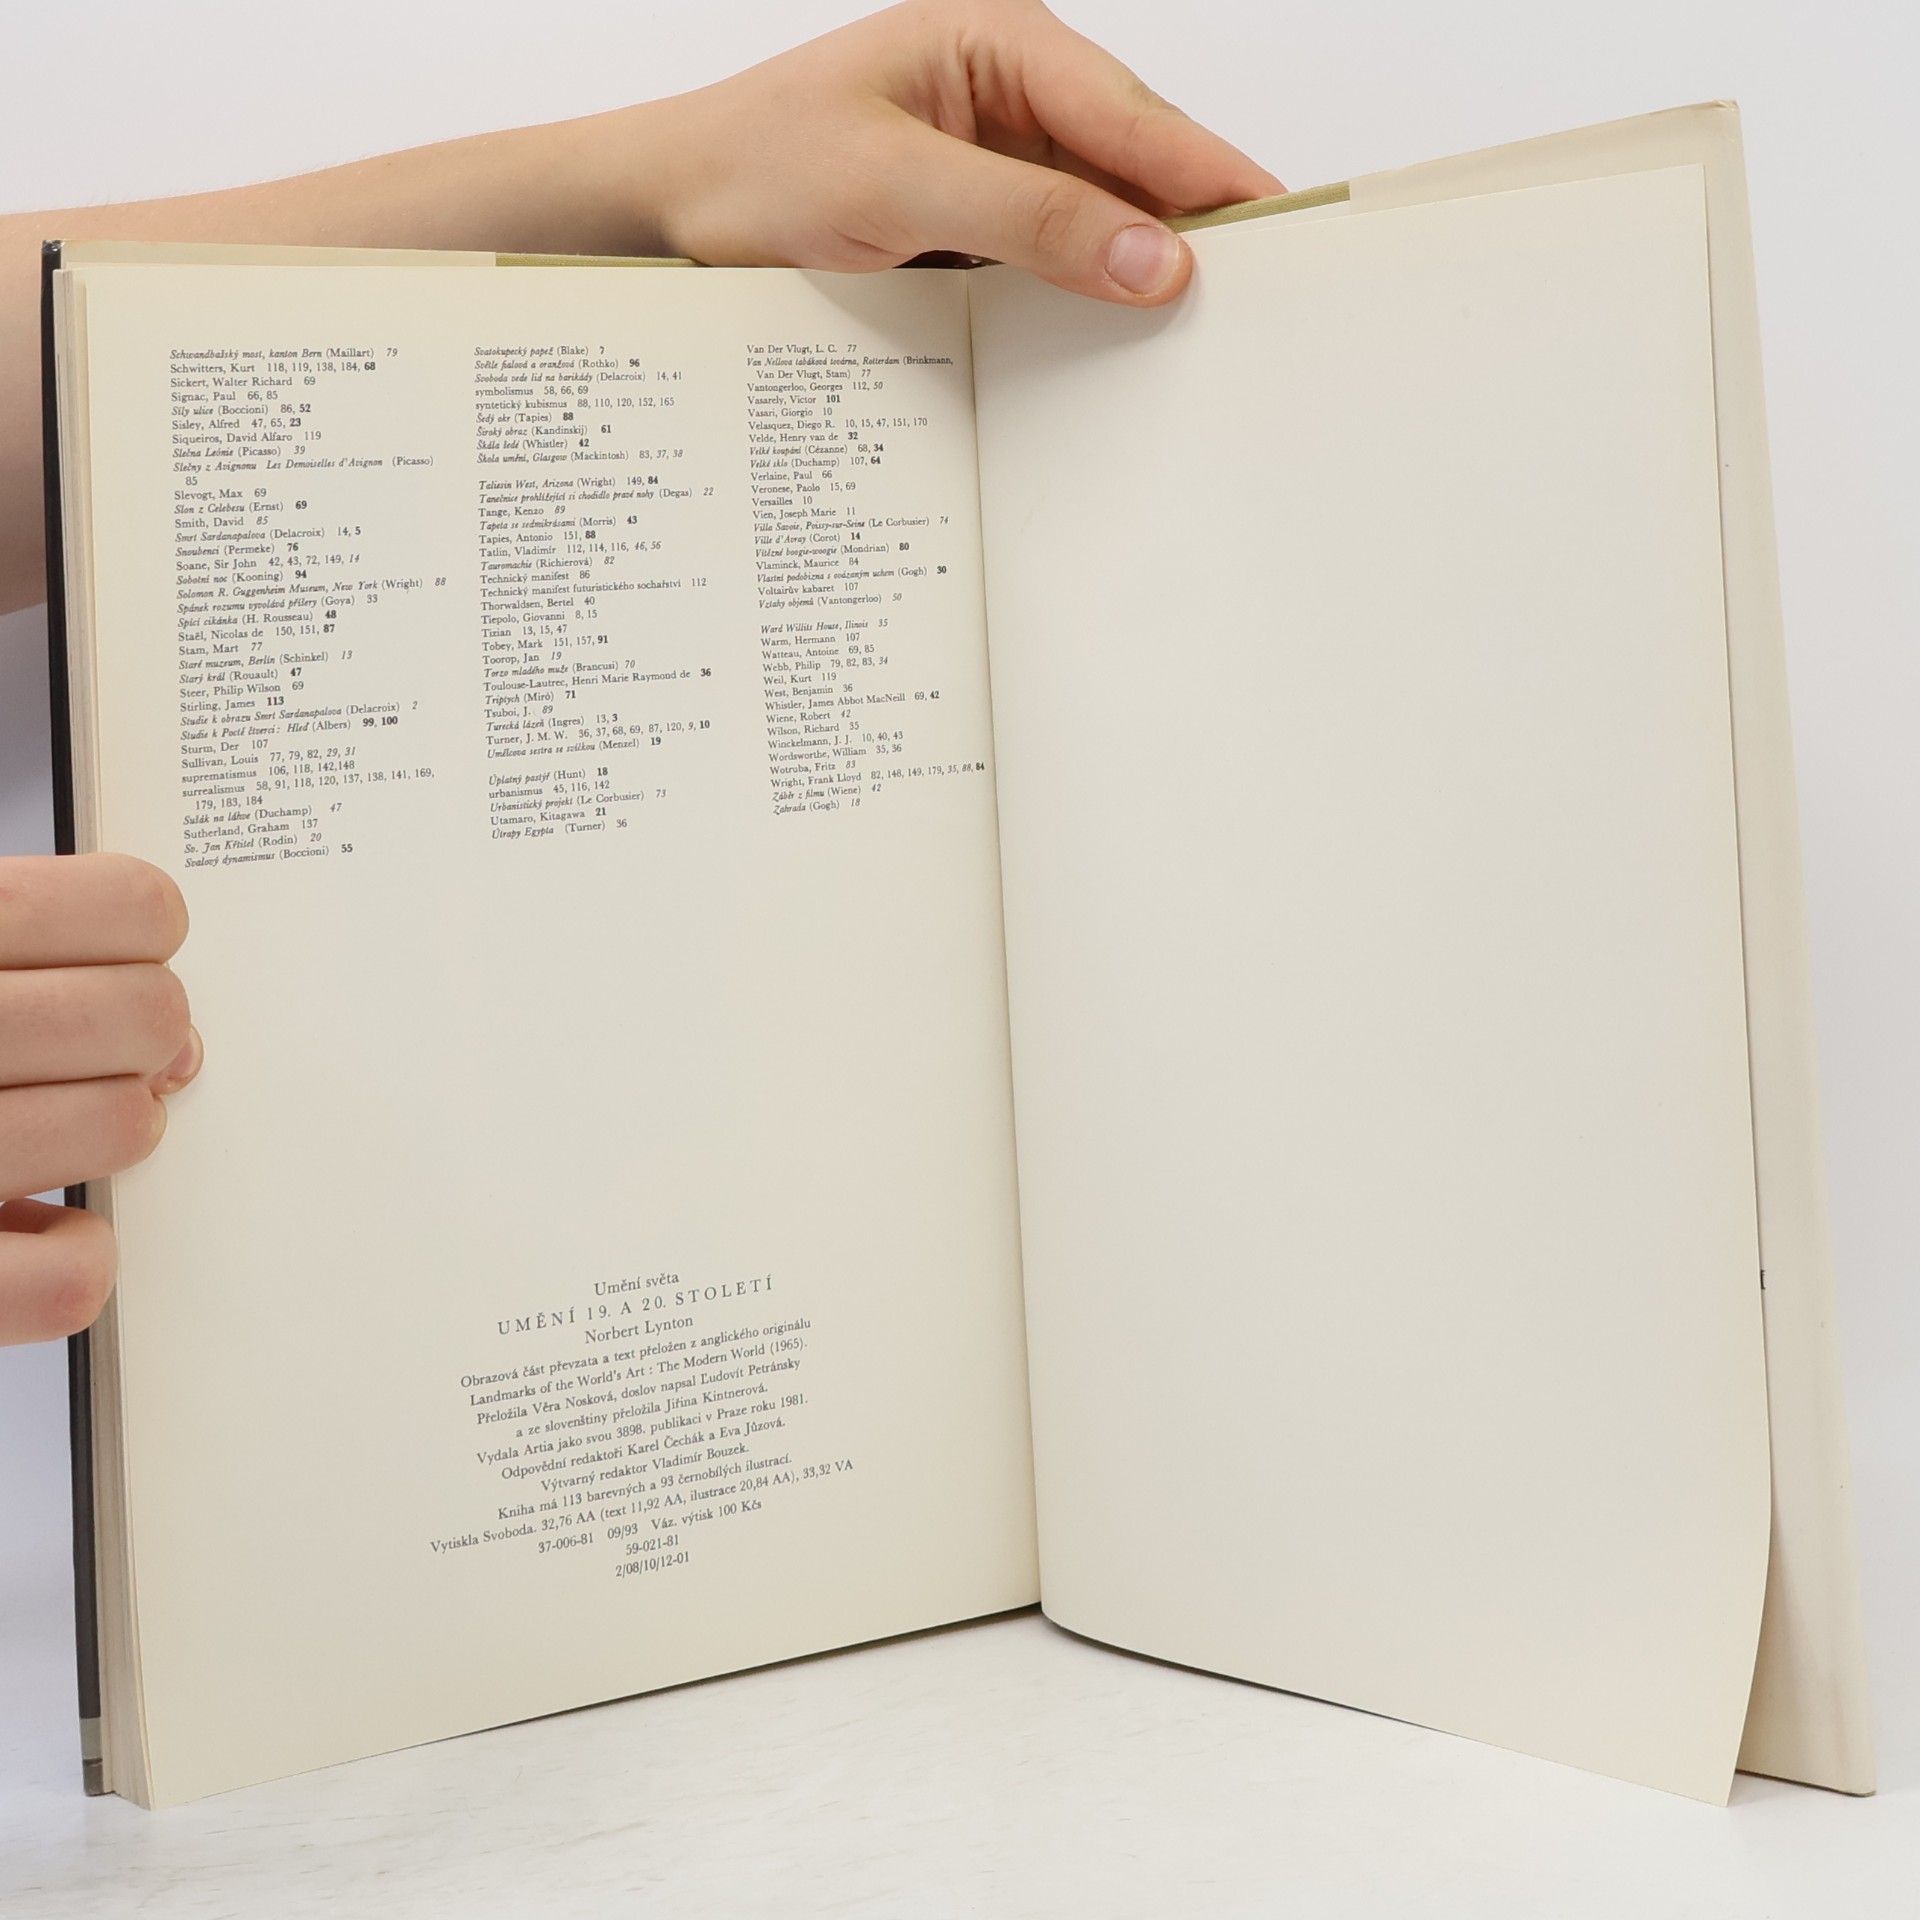 Schwandbašský most, kanton Bern (Maillart) 79
Schwitters, Kurt 118, 119, 138, 184, 68
Sickert, Walter Richard 69
Signac, Paul 66, 85
Síly ulice (Boccioni) 86, 52
Sisley, Alfred 47, 65, 23
Siqueiros, David Alfaro 119
Slečna Leónie (Picasso) 39
Slečny z Avignonu Les Demoiselles d'Avignon (Picasso)
85
Slevogt, Max 69
Slon z Celebesu (Ernst) 69
Smith, David 85
Smrt Sardanapalova (Delacroix) 14, 5
Snoubenci (Permeke) 76
Soane, Sir John 42, 43, 72, 149, 14
Sobotní noc (Kooning) 94
Solomon R. Guggenheim Museum, New York (Wright) 88
Spánek rozumu vyvolává příšery (Goya) 33
Spící cikánka (H. Rousseau) 48
Staël, Nicolas de 150, 151, 87
Stam, Mart 77
Staré muzeum, Berlín (Schinkel) 13
Starý král (Rouault) 47
Steer, Philip Wilson 69
Stirling, James 113
Studie k obrazu Smrt Sardanapalova (Delacroix) 2
Studie k Poctě čtverci: Hleď (Albers) 99, 100
Sturm, Der 107
Sullivan, Louis 77, 79, 82, 29, 31
suprematismus 106, 118, 142,148
surrealismus 58, 91, 118, 120, 137, 138, 141, 169,
179, 183, 184
Sušák na láhve (Duchamp) 47
Sutherland, Graham 137
Sv. Jan Křtitel (Rodin) 20
Svalový dynamismus (Boccioni) 55
Svatokupecký papež (Blake) 7
Světle fialová a oranžová (Rothko) 96
Svoboda vede lid na barikády (Delacroix) 14, 41
symbolismus 58, 66, 69
syntetický kubismus 88, 110, 120, 152, 165
Šedý okr (Tapies) 88
Široký obraz (Kandinskij) 61
Škála šedé (Whistler) 42
Škola umění, Glasgow (Mackintosh) 83, 37, 38
Taliesin West, Arizona (Wright) 149, 84
Tanečnice prohlížející si chodidlo pravé nohy (Degas) 22
Tange, Kenzo 89
Tapeta se sedmikrásami (Morris) 43
Tapies, Antonio 151, 88
Tatlin, Vladimír 112, 114, 116, 46, 56
Tauromachie (Richierová) 82
Technický manifest 86
Technický manifest futuristického sochařství 112
Thorwaldsen, Bertel 40
Tiepolo, Giovanni 8, 15
Tizian 13, 15, 47
Tobey, Mark 151, 157, 91
Toorop, Jan 19
Torzo mladého muže (Brancusi) 70
Toulouse-Lautrec, Henri Marie Raymond de 36
Triptych (Miró) 71
Tsuboi, J. 89
Turecká lázeň (Ingres) 13, 3
Turner, J. M. W. 36, 37, 68, 69, 87, 120, 9, 10
Umělcova sestra se svíčkou (Menzel) 19
Úplatný pastýř (Hunt) 18
urbanismus 45, 116, 142
Urbanistický projekt (Le Corbusier) 73
Utamaro, Kitagawa 21
Útrapy Egypta (Turner) 36
Van Der Vlugt, L. C. 77
Van Nellova tabáková továrna, Rotterdam (Brinkmann,
Van Der Vlugt, Stam) 77
Vantongerloo, Georges 112, 50
Vasarely, Victor 101
Vasari, Giorgio 10
Velasquez, Diego R. 10, 15, 47, 151, 170
Velde, Henry van de 32
Velké koupání (Cézanne) 68, 34
Velké sklo (Duchamp) 107, 64
Verlaine, Paul 66
Veronese, Paolo 15, 69
Versailles 10
Vien, Joseph Marie 11
Villa Savoie, Poissy-sur-Seine (Le Corbusier) 74
Ville d'Avray (Corot) 14
Vítězné boogie-woogie (Mondrian) 80
Vlaminck, Maurice 84
Vlastní podobizna s ovázaným uchem (Gogh) 30
Voltairův kabaret 107
Vztahy objemů (Vantongerloo) 50
Ward Willits House, Ilinois 35
Warm, Hermann 107
Watteau, Antoine 69, 85
Webb, Philip 79, 82, 83, 34
Weil, Kurt 119
West, Benjamin 36
Whistler, James Abbot MacNeill 69, 42
Wiene, Robert 42
Wilson, Richard 35
Winckelmann, J. J. 10, 40, 43
Wordsworthe, William 35, 36
Wotruba, Fritz 83
Wright, Frank Lloyd 82, 148, 149, 179, 35, 88, 84
Záběr z filmu (Wiene) 42
Zahrada (Gogh) 18
Umění světa
UMĚNÍ 19. A 20. STOLETÍ
Norbert Lynton
Obrazová část převzata a text přeložen z anglického originálu
Landmarks of the World's Art : The Modern World (1965).
Přeložila Věra Nosková, doslov napsal Ľudovít Petránsky
a ze slovenštiny přeložila Jiřina Kintnerová.
Vydala Artia jako svou 3898. publikaci v Praze roku 1981.
Odpovědní redaktoři Karel Čechák a Eva Jůzová.
Výtvarný redaktor Vladimír Bouzek.
Kniha má 113 barevných a 93 černobílých ilustrací.
Vytiskla Svoboda. 32,76 AA (text 11,92 AA, ilustrace 20,84 AA), 33,32 VA
37-006-81 09/93 Váz. výtisk 100 Kčs
59-021-81
2/08/10/12-01